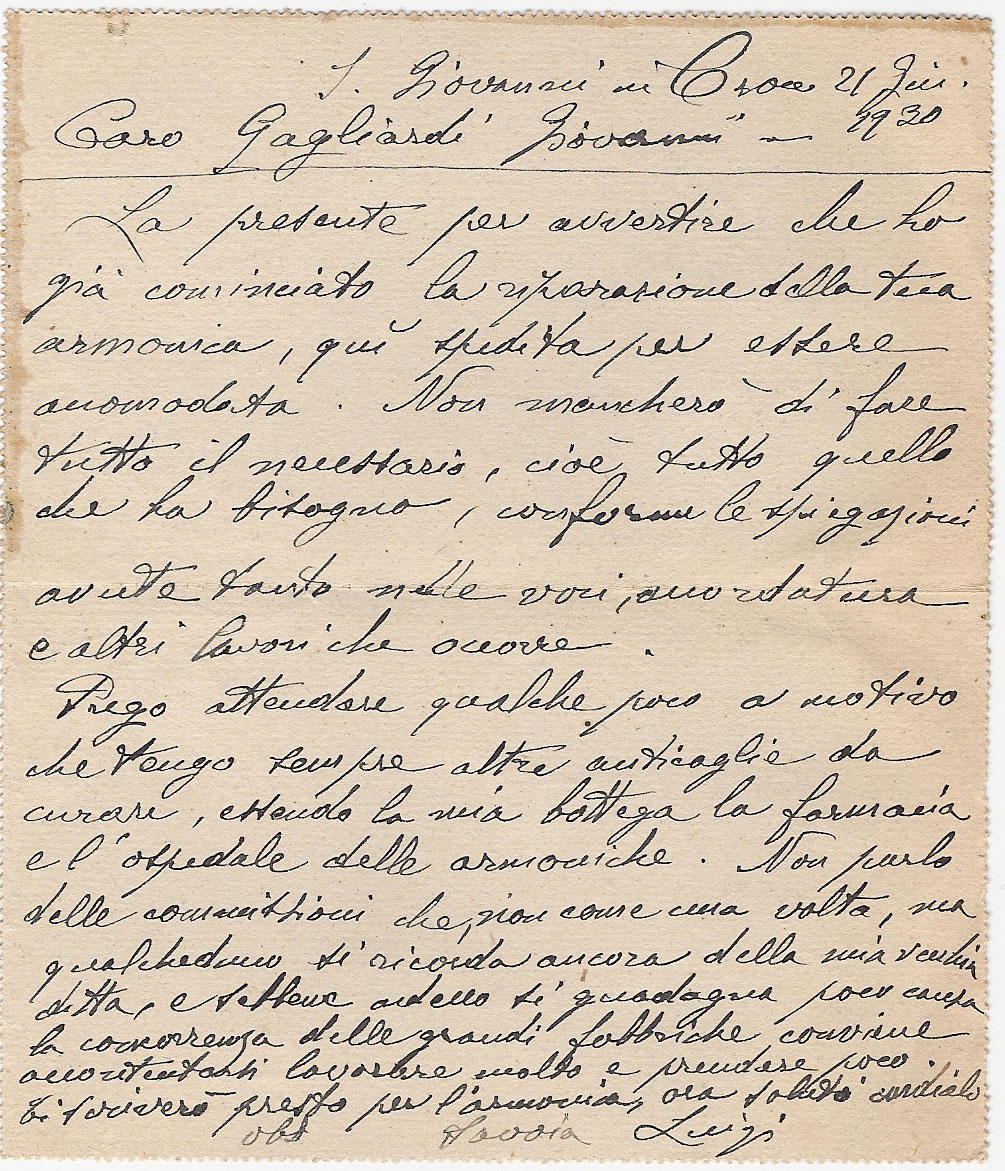 S. Giovanni in Croce 21 Giu.
1930
Caro Gagliardi Giovanni —
La presente per avvertire che ho
già cominciato la riparazione della tua
armonica, quì spedita per essere
accomodata. Non mancherò di fare
tutto il necessario, cioè tutto quello
che ha bisogno, conforme le spiegazioni
avute tanto nelle voci, accordatura
e altri lavori che occorre.
Prego attendere qualche poco a motivo
che tengo sempre altre anticaglie da
curare, essendo la mia bottega la farmacia
e l'ospedale delle armoniche. Non parlo
delle commissioni che, non come una volta, ma
qualcheduno si ricorda ancora della mia vecchia
ditta, e sebbene adesso si guadagna poco causa
la concorrenza delle grandi fabbriche conviene
accontentarsi lavorare molto e prendere poco.
Ti scriverò presto per l'armonica, ora saluto cordiale
Luigi